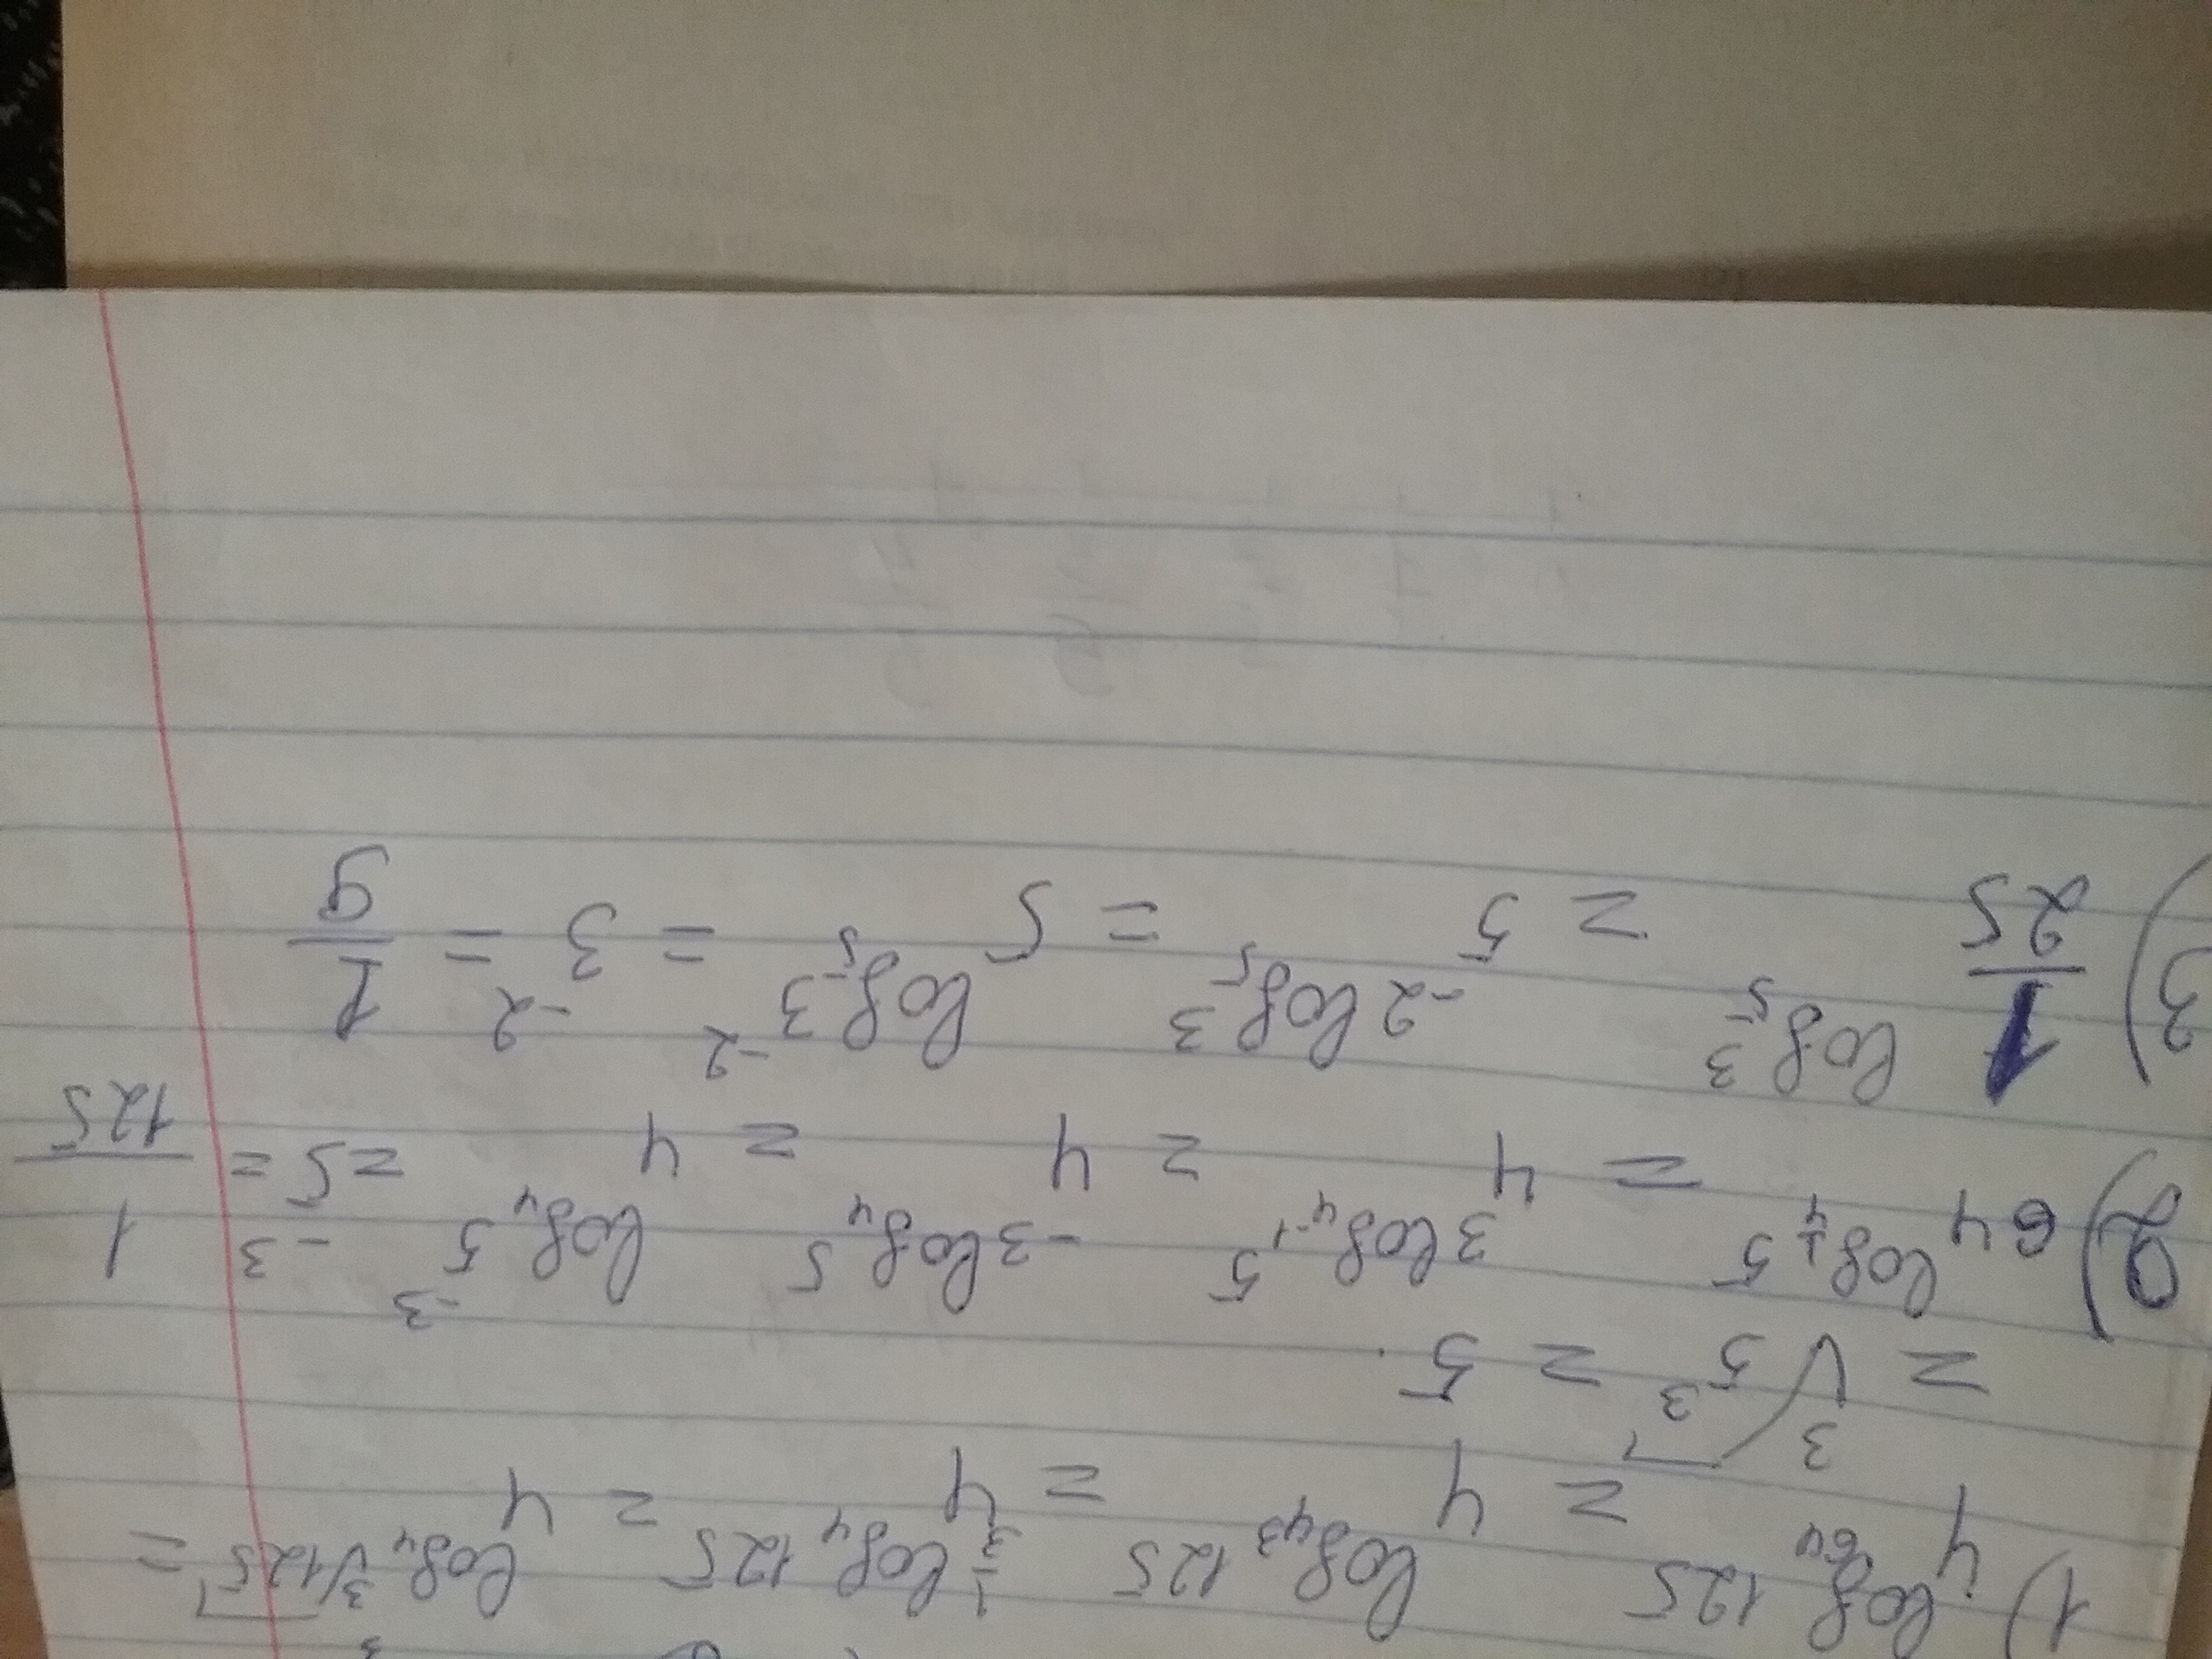 1) 4^{log_{64} 125} = 4^{log_{4^3} 125} = 4^{\frac{1}{3} log_4 125} = 4^{log_4 \sqrt[3]{125}} =
= \sqrt[3]{5^3} = 5.
2) 64^{log_{\frac{1}{4}} 5} = 4^{3 log_{4^{-1}} 5} = 4^{-3 log_4 5} = 4^{log_4 5^{-3}} = 5^{-3} = \frac{1}{125}
3) \frac{1}{25}^{log_5 3} = 5^{-2 log_5 3} = 5^{log_5 3^{-2}} = 3^{-2} = \frac{1}{9}